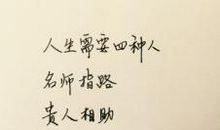 人生需要四种人
名师指路
贵人相助